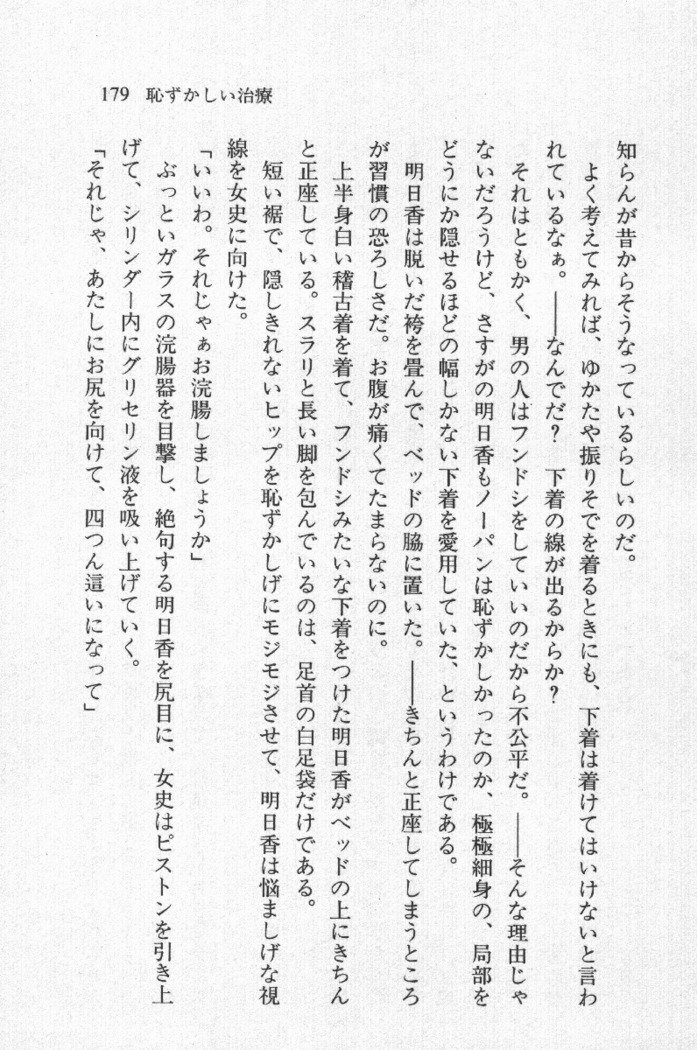 179 恥ずかしい治療
知らんが昔からそうなっているらしいのだ。
　よく考えてみれば、ゆかたや振りそでを着るときにも、下着は着けてはいけないと言わ
れているなぁ。――なんでだ？　下着の線が出るからか？
　それはともかく、男の人はフンドシをしていいのだから不公平だ。――そんな理由じゃ
ないだろうけど、さすがの明日香もノーパンは恥ずかしかったのか、極極細身の、局部を
どうにか隠せるほどの幅しかない下着を愛用していた、というわけである。
　明日香は脱いだ袴を畳んで、ベッドの脇に置いた。――きちんと正座してしまうところ
が習慣の恐ろしさだ。お腹が痛くてたまらないのに。
　上半身白い稽古着を着て、フンドシみたいな下着をつけた明日香がベッドの上にきちん
と正座している。スラリと長い脚を包んでいるのは、足首の白足袋だけである。
　短い裾で、隠しきれないヒップを恥ずかしげにモジモジさせて、明日香は悩ましげな視
線を女史に向けた。
「いいわ。それじゃぁお浣腸しましょうか」
　ぶっといガラスの浣腸器を目撃し、絶句する明日香を尻目に、女史はピストンを引き上
げて、シリンダー内にグリセリン液を吸い上げていく。
「それじゃ、あたしにお尻を向けて、四つん這いになって」